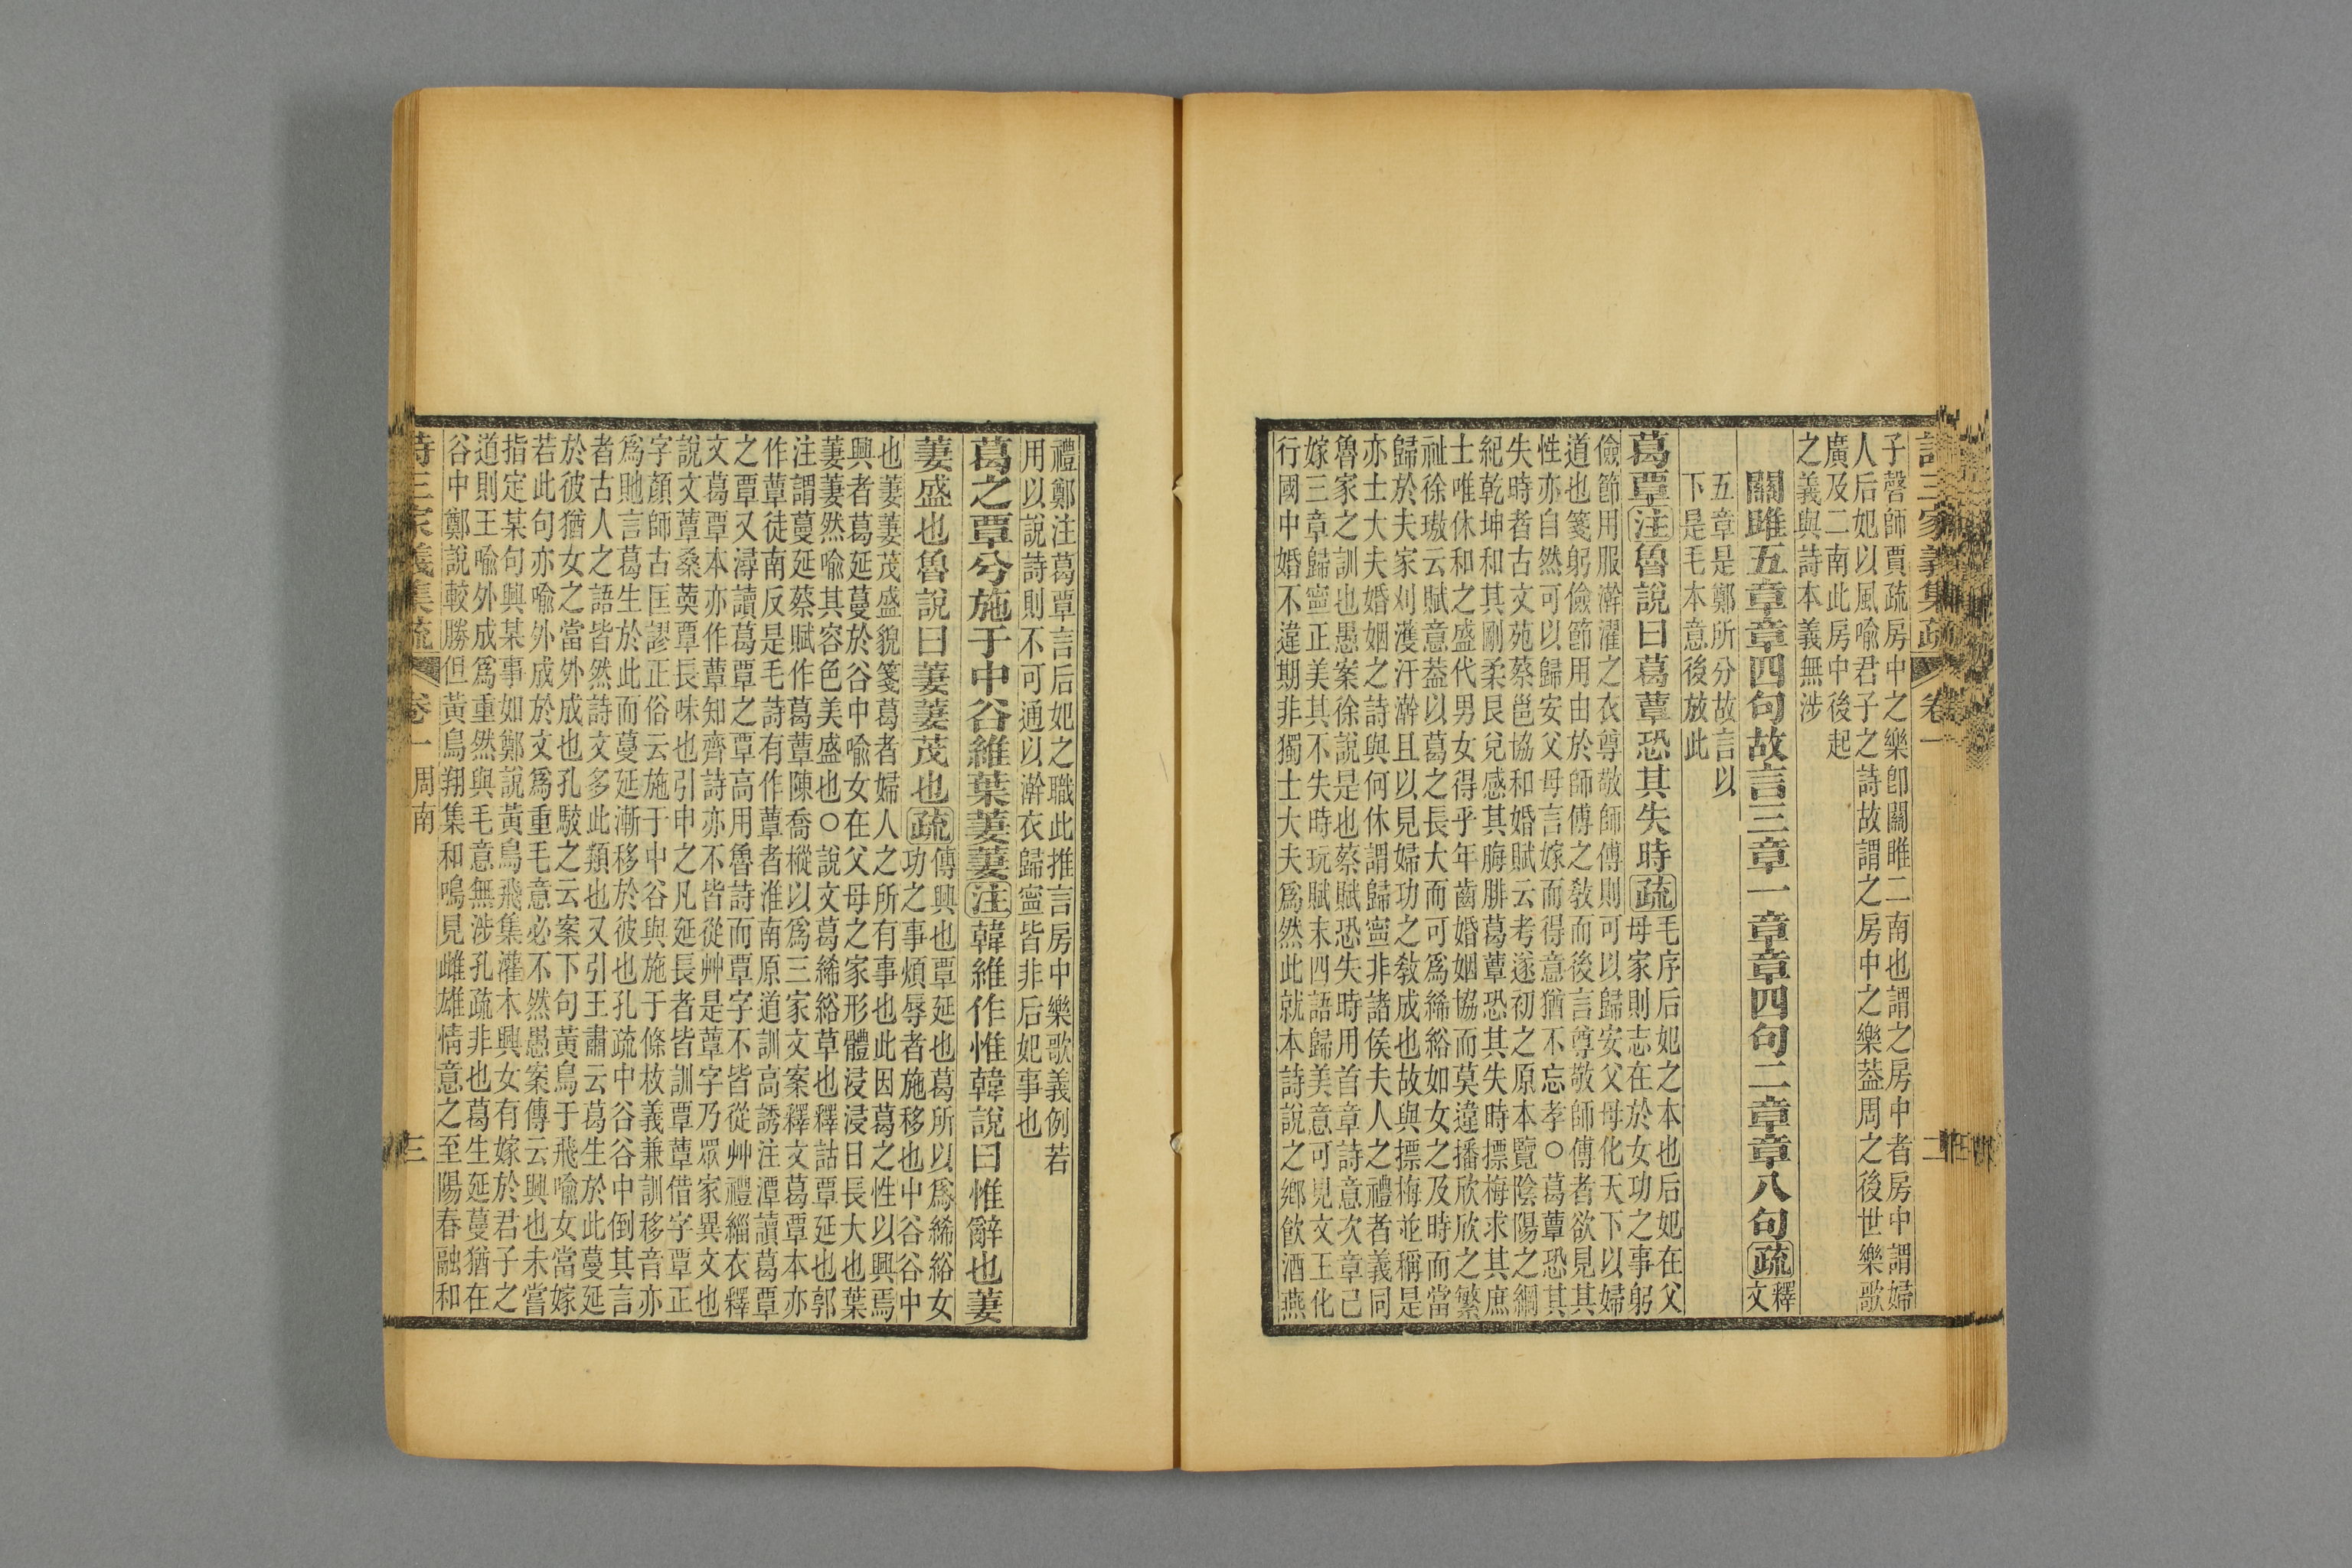 詩三家義集疏 卷一 二
子磬師賈疏房中之樂卽關雎二南也謂之房中者房中謂婦
人后妃以風喻君子之詩故謂之房中之樂葢周之後世樂歌
廣及二南此房中後起
之義與詩本義無涉
關雎五章章四句故言三章一章章四句二章章八句疏釋
文
五章是鄭所分故言以
下是毛本意後放此
葛覃注魯說曰葛蕈恐其失時疏毛序后妃之本也后妃在父
母家則志在於女功之事躬
儉節用服澣濯之衣尊敬師傅則可以歸安父母化天下以婦
道也箋躬儉節用由於師傅之敎而後言尊敬師傅者欲見其
性亦自然可以歸安父母言嫁而得意猶不忘孝○葛蕈恐其
失時者古文苑蔡邕協和婚賦云考遂初之原本覽陰陽之綱
紀乾坤和其剛柔艮兌感其脢腓葛蕈恐其失時摽梅求其庶
士唯休和之盛代男女得乎年齒婚姻協而莫違播欣欣之繁
祉徐璈云賦意葢以葛之長大而可爲絺綌如女之及時而當
歸於夫家刈濩汙澣且以見婦功之敎成也故與摽梅並稱是
亦士大夫婚姻之詩與何休謂歸寧非諸侯夫人之禮者義同
魯家之訓也愚案徐說是也蔡賦恐失時用首章詩意次章已
嫁三章歸寧正美其不失時玩賦末四語歸美意可見文王化
行國中婚不違期非獨士大夫爲然此就本詩說之鄉飮酒燕
禮鄭注葛覃言后妃之職此推言房中樂歌義例若
用以說詩則不可通以澣衣歸寧皆非后妃事也
葛之覃兮施于中谷維葉萋萋注韓維作惟韓說曰惟辭也萋
萋盛也魯說曰萋萋茂也疏傳興也覃延也葛所以爲絺綌女
功之事煩辱者施移也中谷谷中
也萋萋茂盛貌箋葛者婦人之所有事也此因葛之性以興焉
興者葛延蔓於谷中喻女在父母之家形體浸浸日長大也葉
萋萋然喻其容色美盛也○說文葛絺綌草也釋詁覃延也郭
注謂蔓延蔡賦作葛蕈陳喬樅以爲三家文案釋文葛覃本亦
作蕈徒南反是毛詩有作蕈者淮南原道訓高誘注潭讀葛覃
之覃又潯讀葛覃之覃高用魯詩而覃字不皆從艸禮緇衣釋
文葛覃本亦作蕈知齊詩亦不皆從艸是蕈字乃眾家異文也
說文蕈桑䓴覃長味也引申之凡延長者皆訓覃蕈借字覃正
字顏師古匡謬正俗云施于中谷與施于條枚義兼訓移音亦
爲貤言葛生於此而蔓延漸移於彼也孔疏中谷谷中倒其言
者古人之語皆然詩文多此類也又引王肅云葛生於此蔓延
於彼猶女之當外成也孔駁之云案下句黃鳥于飛喻女當嫁
若此句亦喻外成於文爲重毛意必不然愚案傳云興也未嘗
指定某句興某事如鄭說黃鳥飛集灌木興女有嫁於君子之
道則王喻外成爲重然與毛意無涉孔疏非也葛生延蔓猶在
谷中鄭說較勝但黃鳥翔集和鳴見雌雄情意之至陽春融和
詩三家義集疏 卷一 周南 三